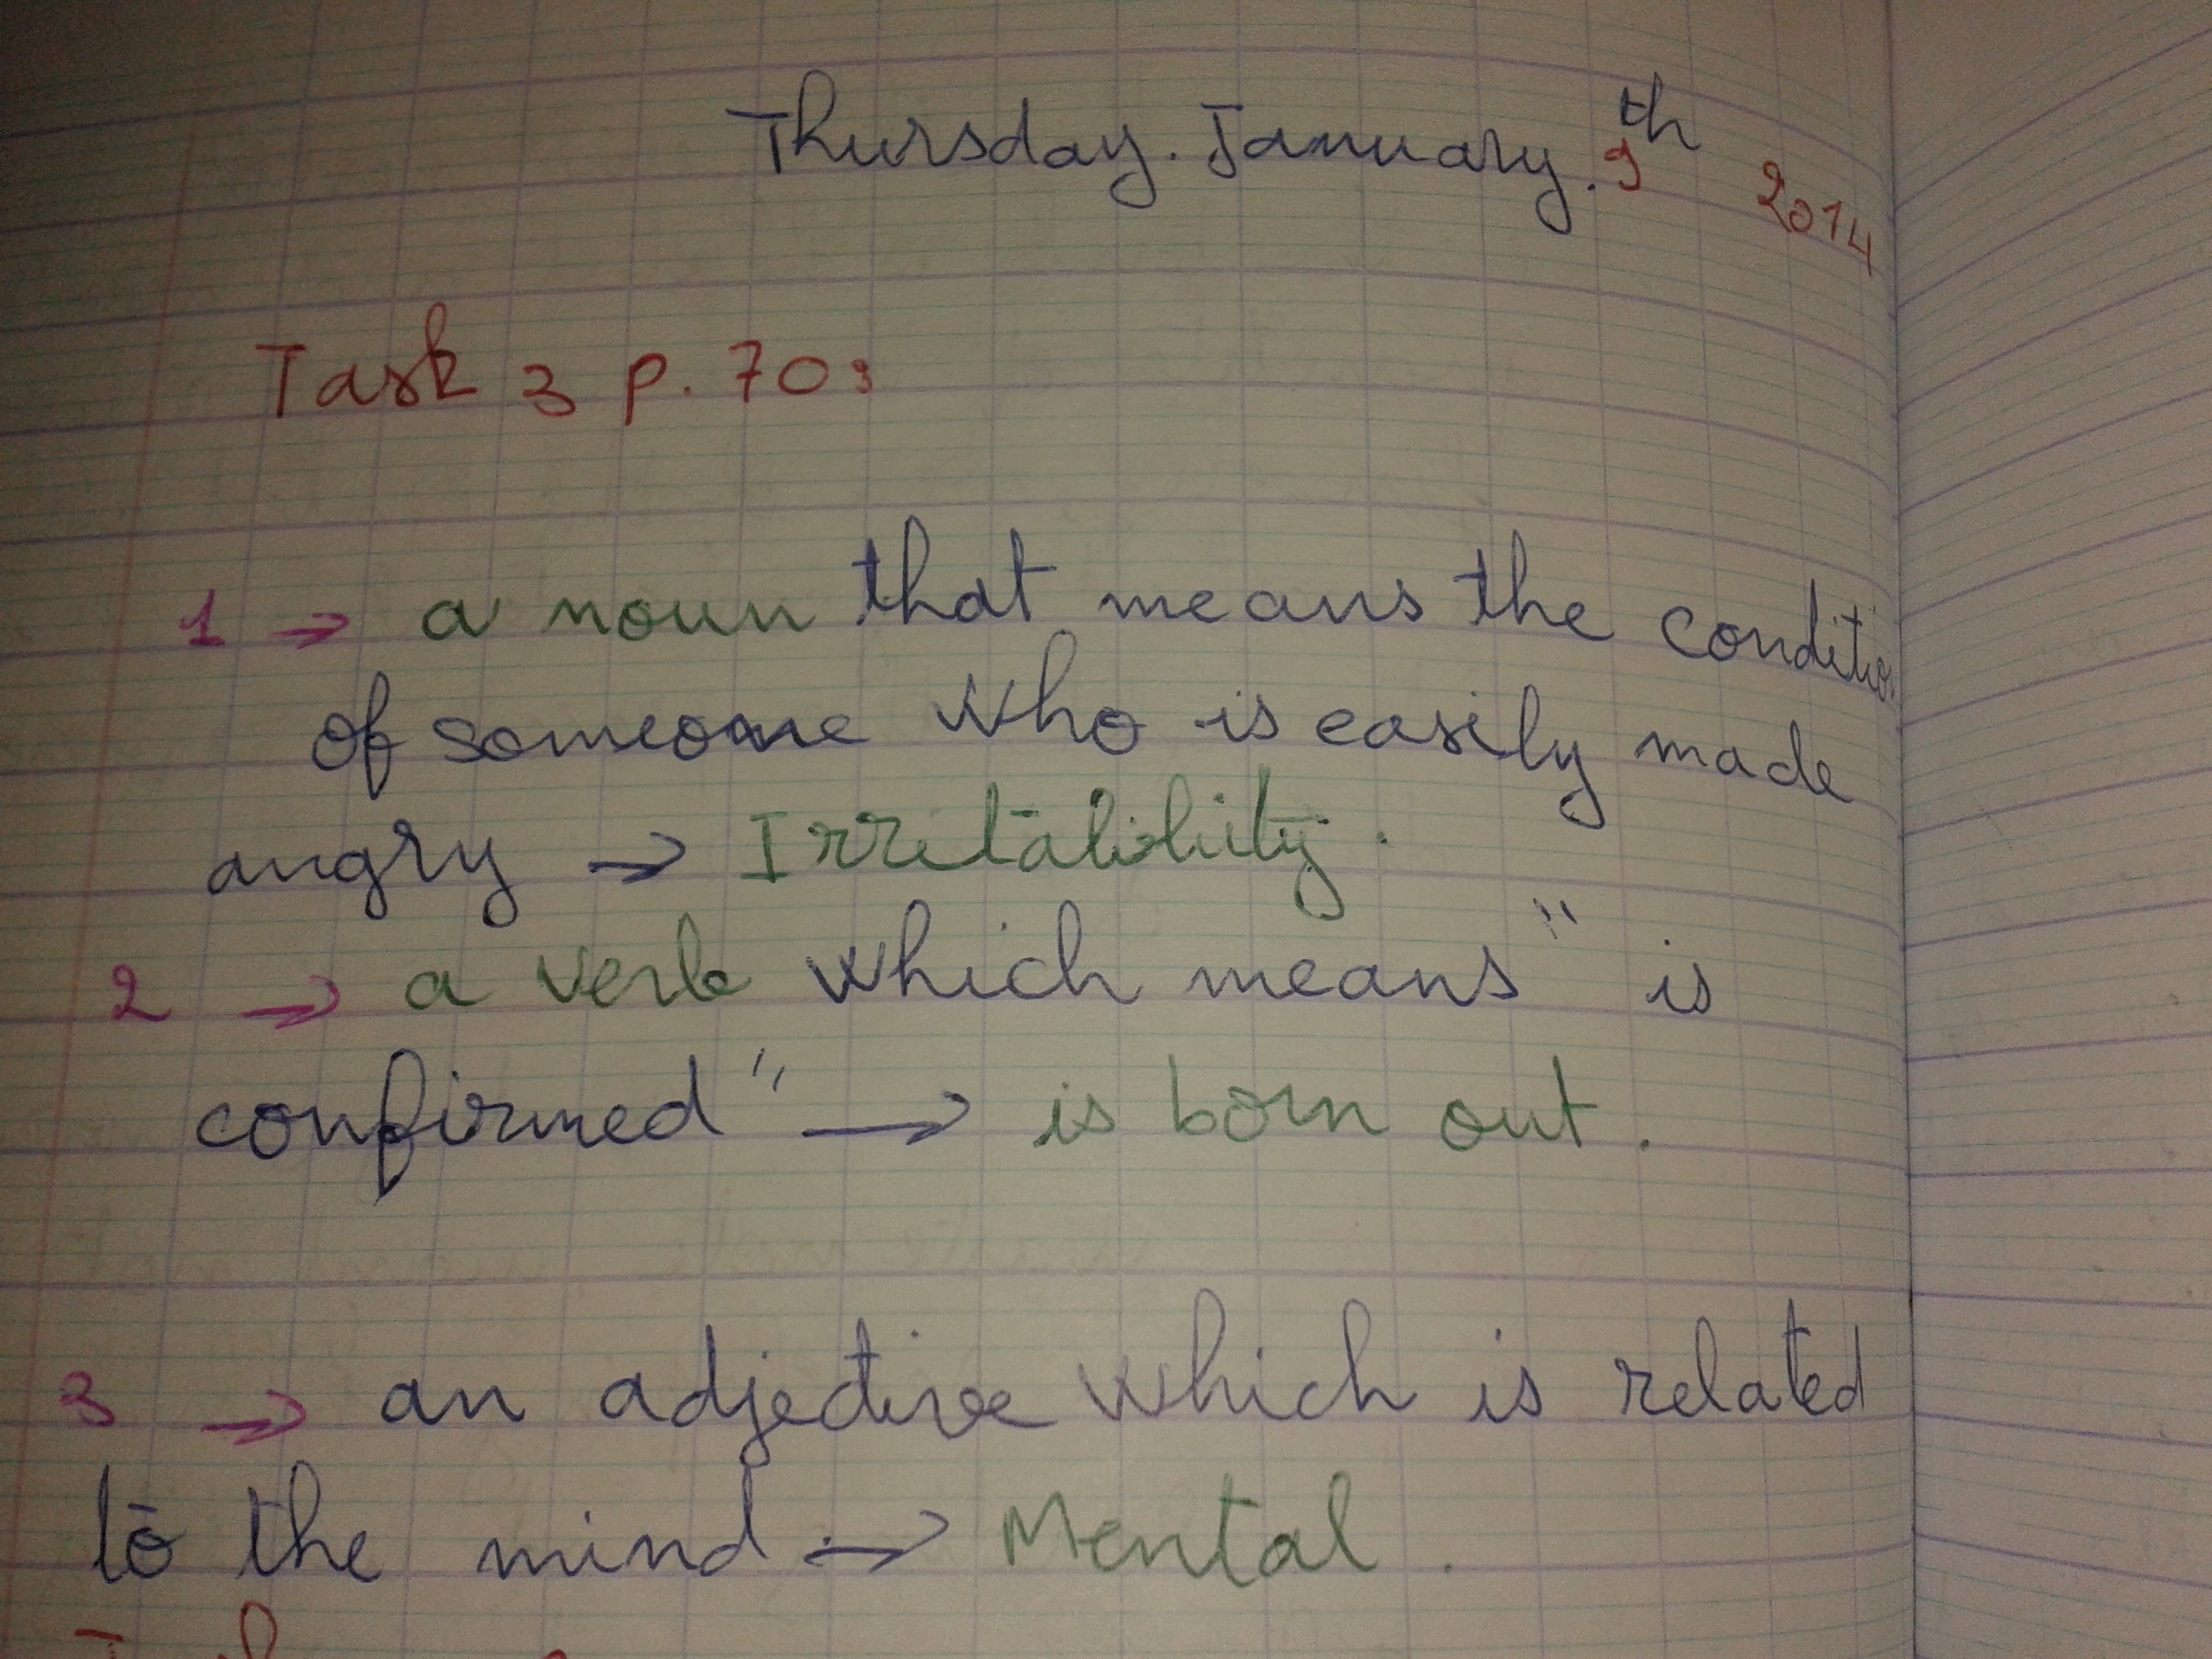 Thursday. January. 9th 2014
Task 3 p. 70:
1 → a noun that means the condition
of someone who is easily made
angry → Irritability.
2 → a verb which means " is
confirmed" → is born out.
3 → an adjective which is related
to the mind → Mental.